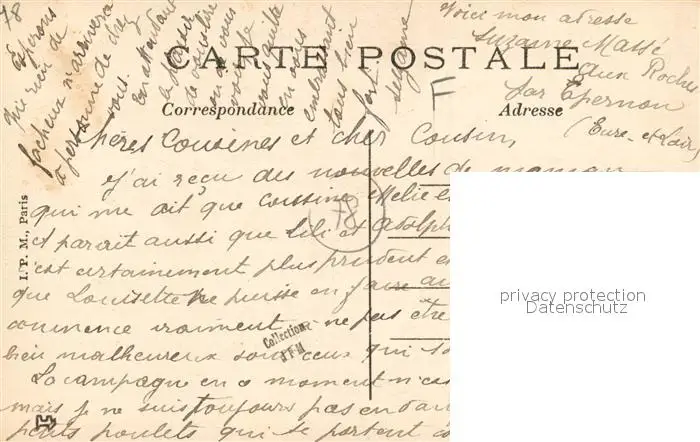 78
Espérons
que rien de
fâcheux n'arrivera
à personne de chez
vous.
En attendant
le plaisir
de vous lire
ou de vous
voir
je vous quitte
en vous
embrassant
tous bien
fort
Suzanne
Voici mon adresse
Suzanne Massé
aux Roches
par Epernon
(Eure-et-Loir)
CARTE POSTALE
F
Correspondance
Adresse
Chères Cousines et cher Cousin,
J'ai reçu des nouvelles de maman
qui me dit que cousine Melie e
et paraît aussi que Lili et Adolph
est certainement plus prudent e
que Louisette ne puisse en faire au
commence vraiment à ne pas être
bien malheureux sont ceux qui so
La campagne en ce moment n'es
mais je ne suis toujours pas en dan
petits poulets qui se portent
78
I. P. M., Paris
Collection
privacy protection
Datenschutz